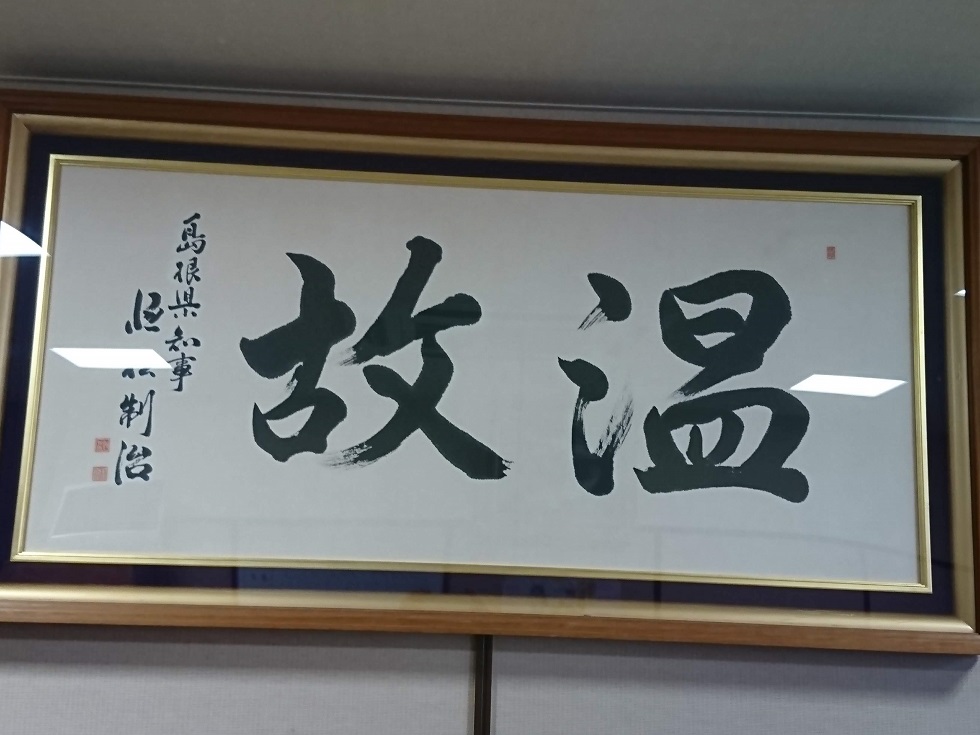 温故
島根県知事
恒松制治